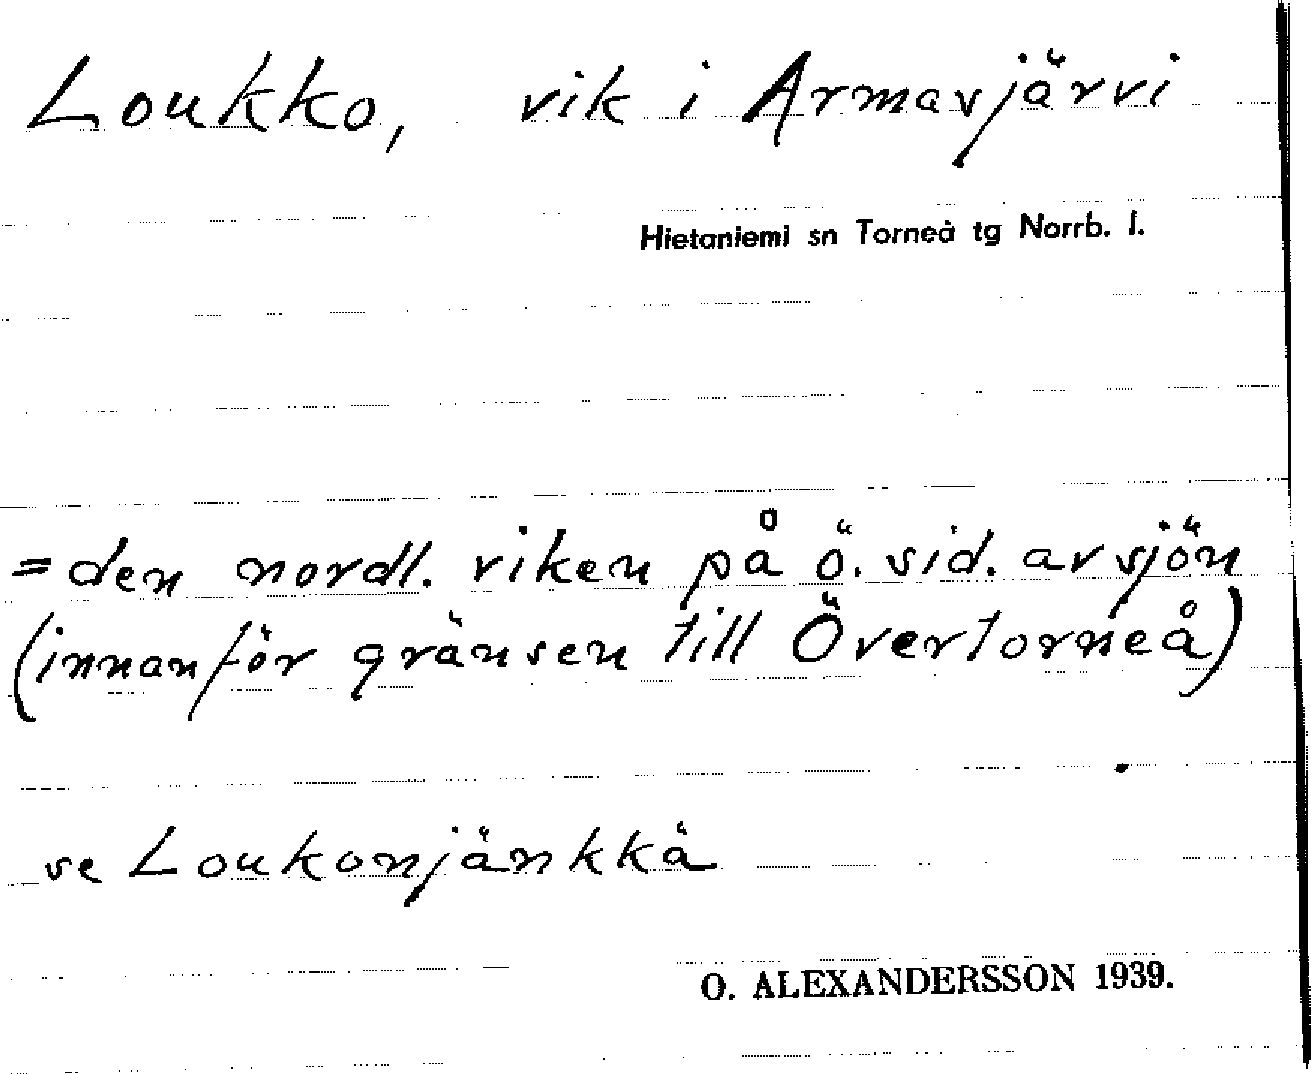 Loukko, vik i Armasjärvi
Hietaniemi sn Torneå tg Norrb. l.
= den nordl. viken på ö. sid. av sjön
(innanför gränsen till Övertorneå)
se Loukonjänkkä
O. ALEXANDERSSON 1939.